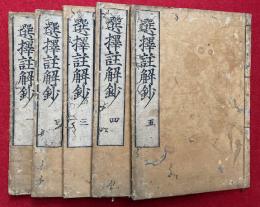 選擇註解鈔 五
選擇註解鈔 四
選擇註解鈔 三
選擇註解鈔
選擇註解鈔